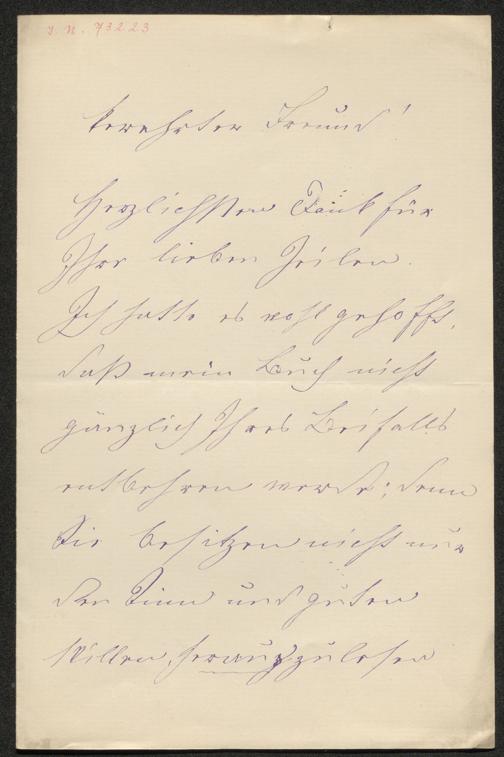 J. N. 73223
Verehrter Freund!
Herzlichsten Dank für
Ihre lieben Zeilen.
Ich hatte es wohl gehofft,
daß mein Buch nicht
gänzlich Ihres Beifalls
entbehren werde; denn
Sie besitzen nicht nur
den Sinn und guten
Willen, herauszulesen